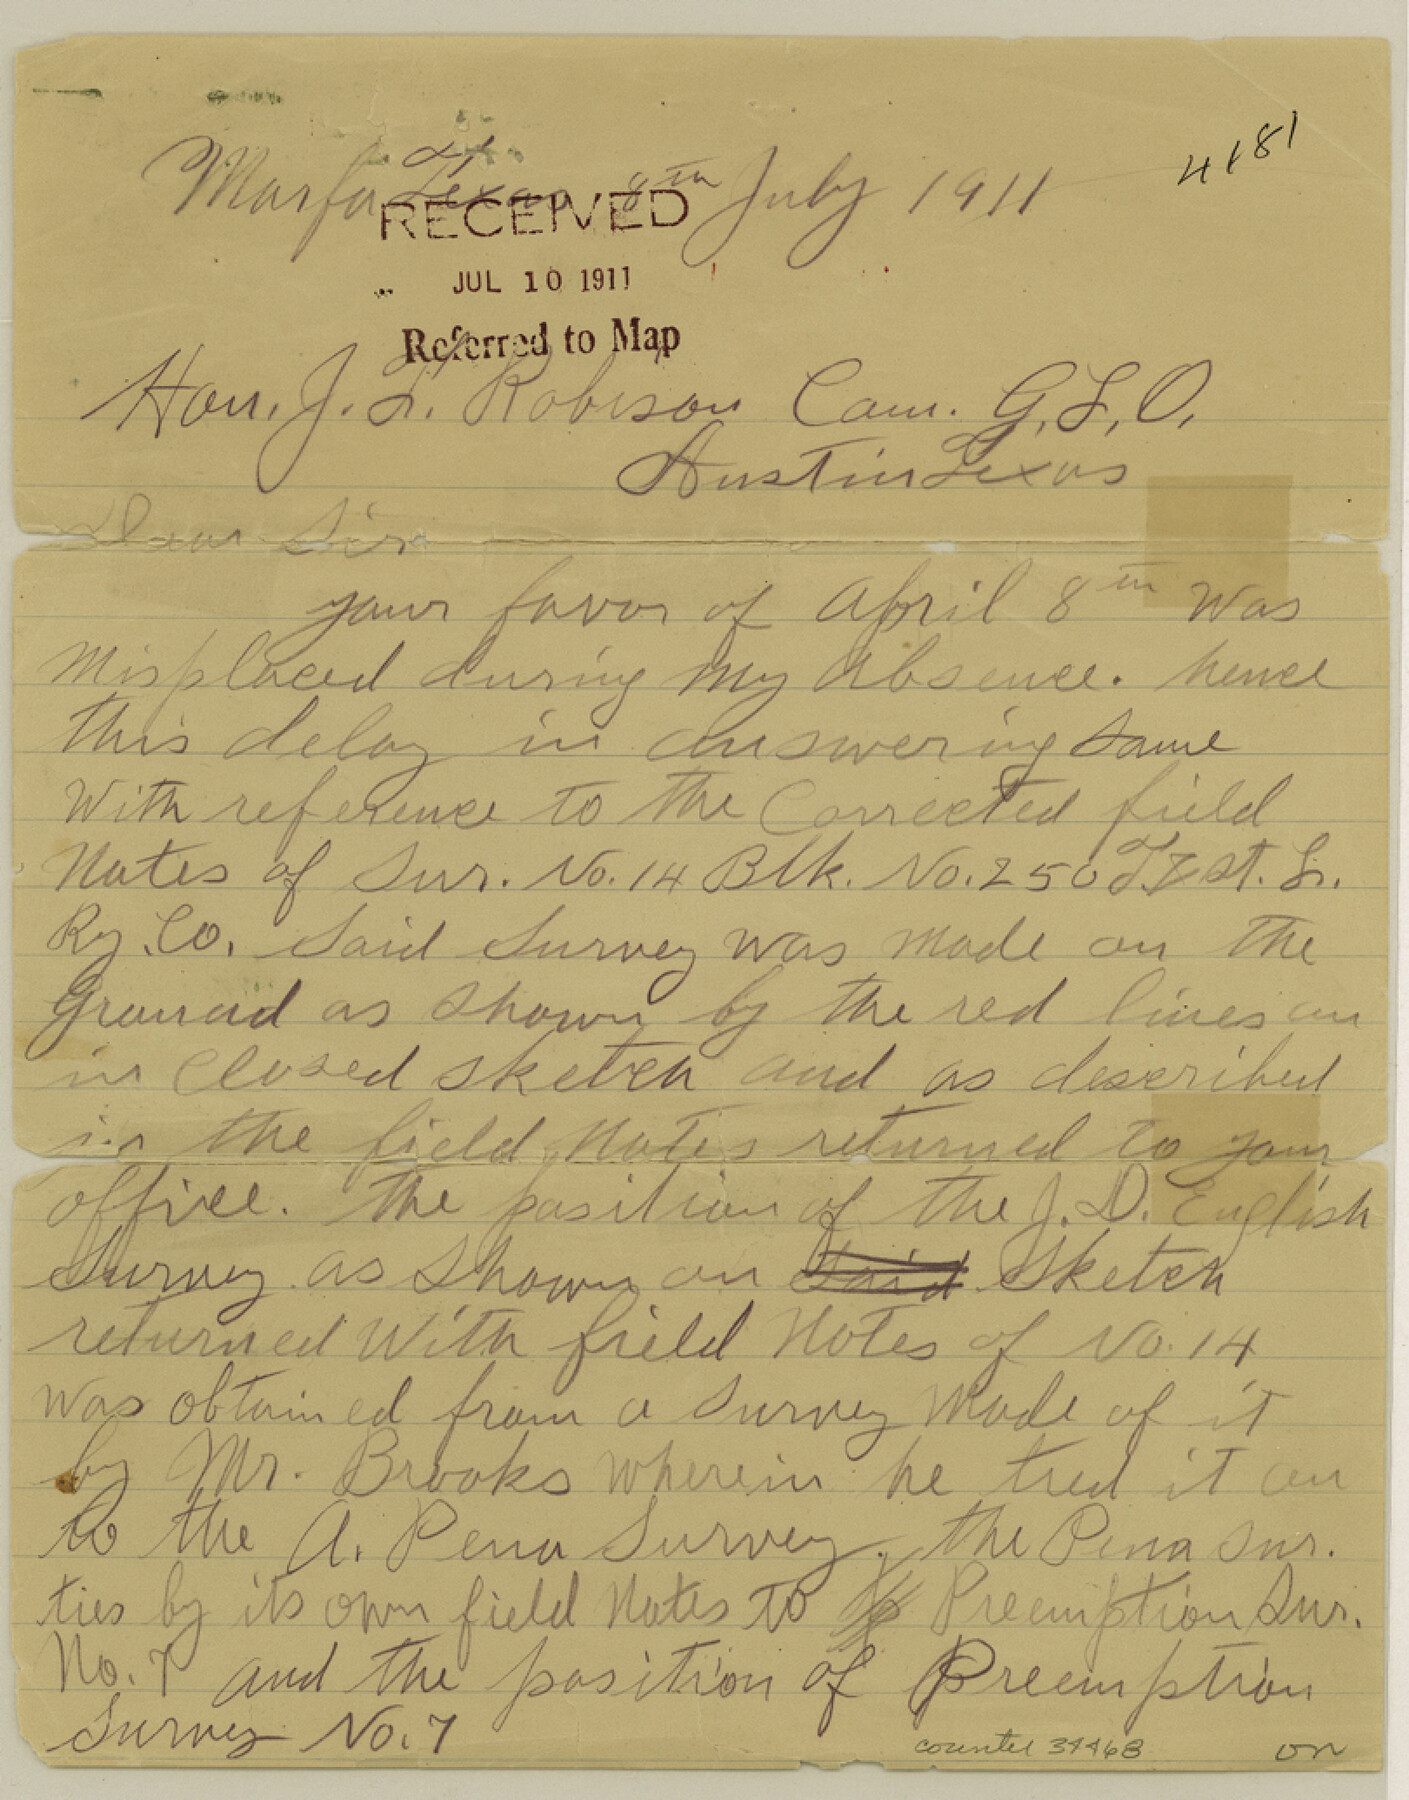 4181
Marfa Texas 8th July 1911
RECEIVED
JUL 10 1911
Referred to Map
Hon. J. T. Robison Com. G. L. O.
Austin Texas
Dear Sir
your favor of April 8th was
Misplaced during my absence. hence
this delay in answering same
With reference to the Corrected field
Notes of Sur. No. 14 Blk. No. 250 T. & St. L.
Ry. Co. Said Survey was made on the
Ground as shown by the red lines on
in closed sketch and as described
in the field Notes returned to your
office. The position of the J. D. English
Survey as shown on Said Sketch
returned With field Notes of No. 14
was obtained from a survey Made of it
by Mr. Brooks wherein he tied it on
to the A. Pena Survey, the Pena sur.
ties by its own field Notes to Preemption Sur.
No. 7 and the position of Preemption
Survey No. 7
counter 34468 on